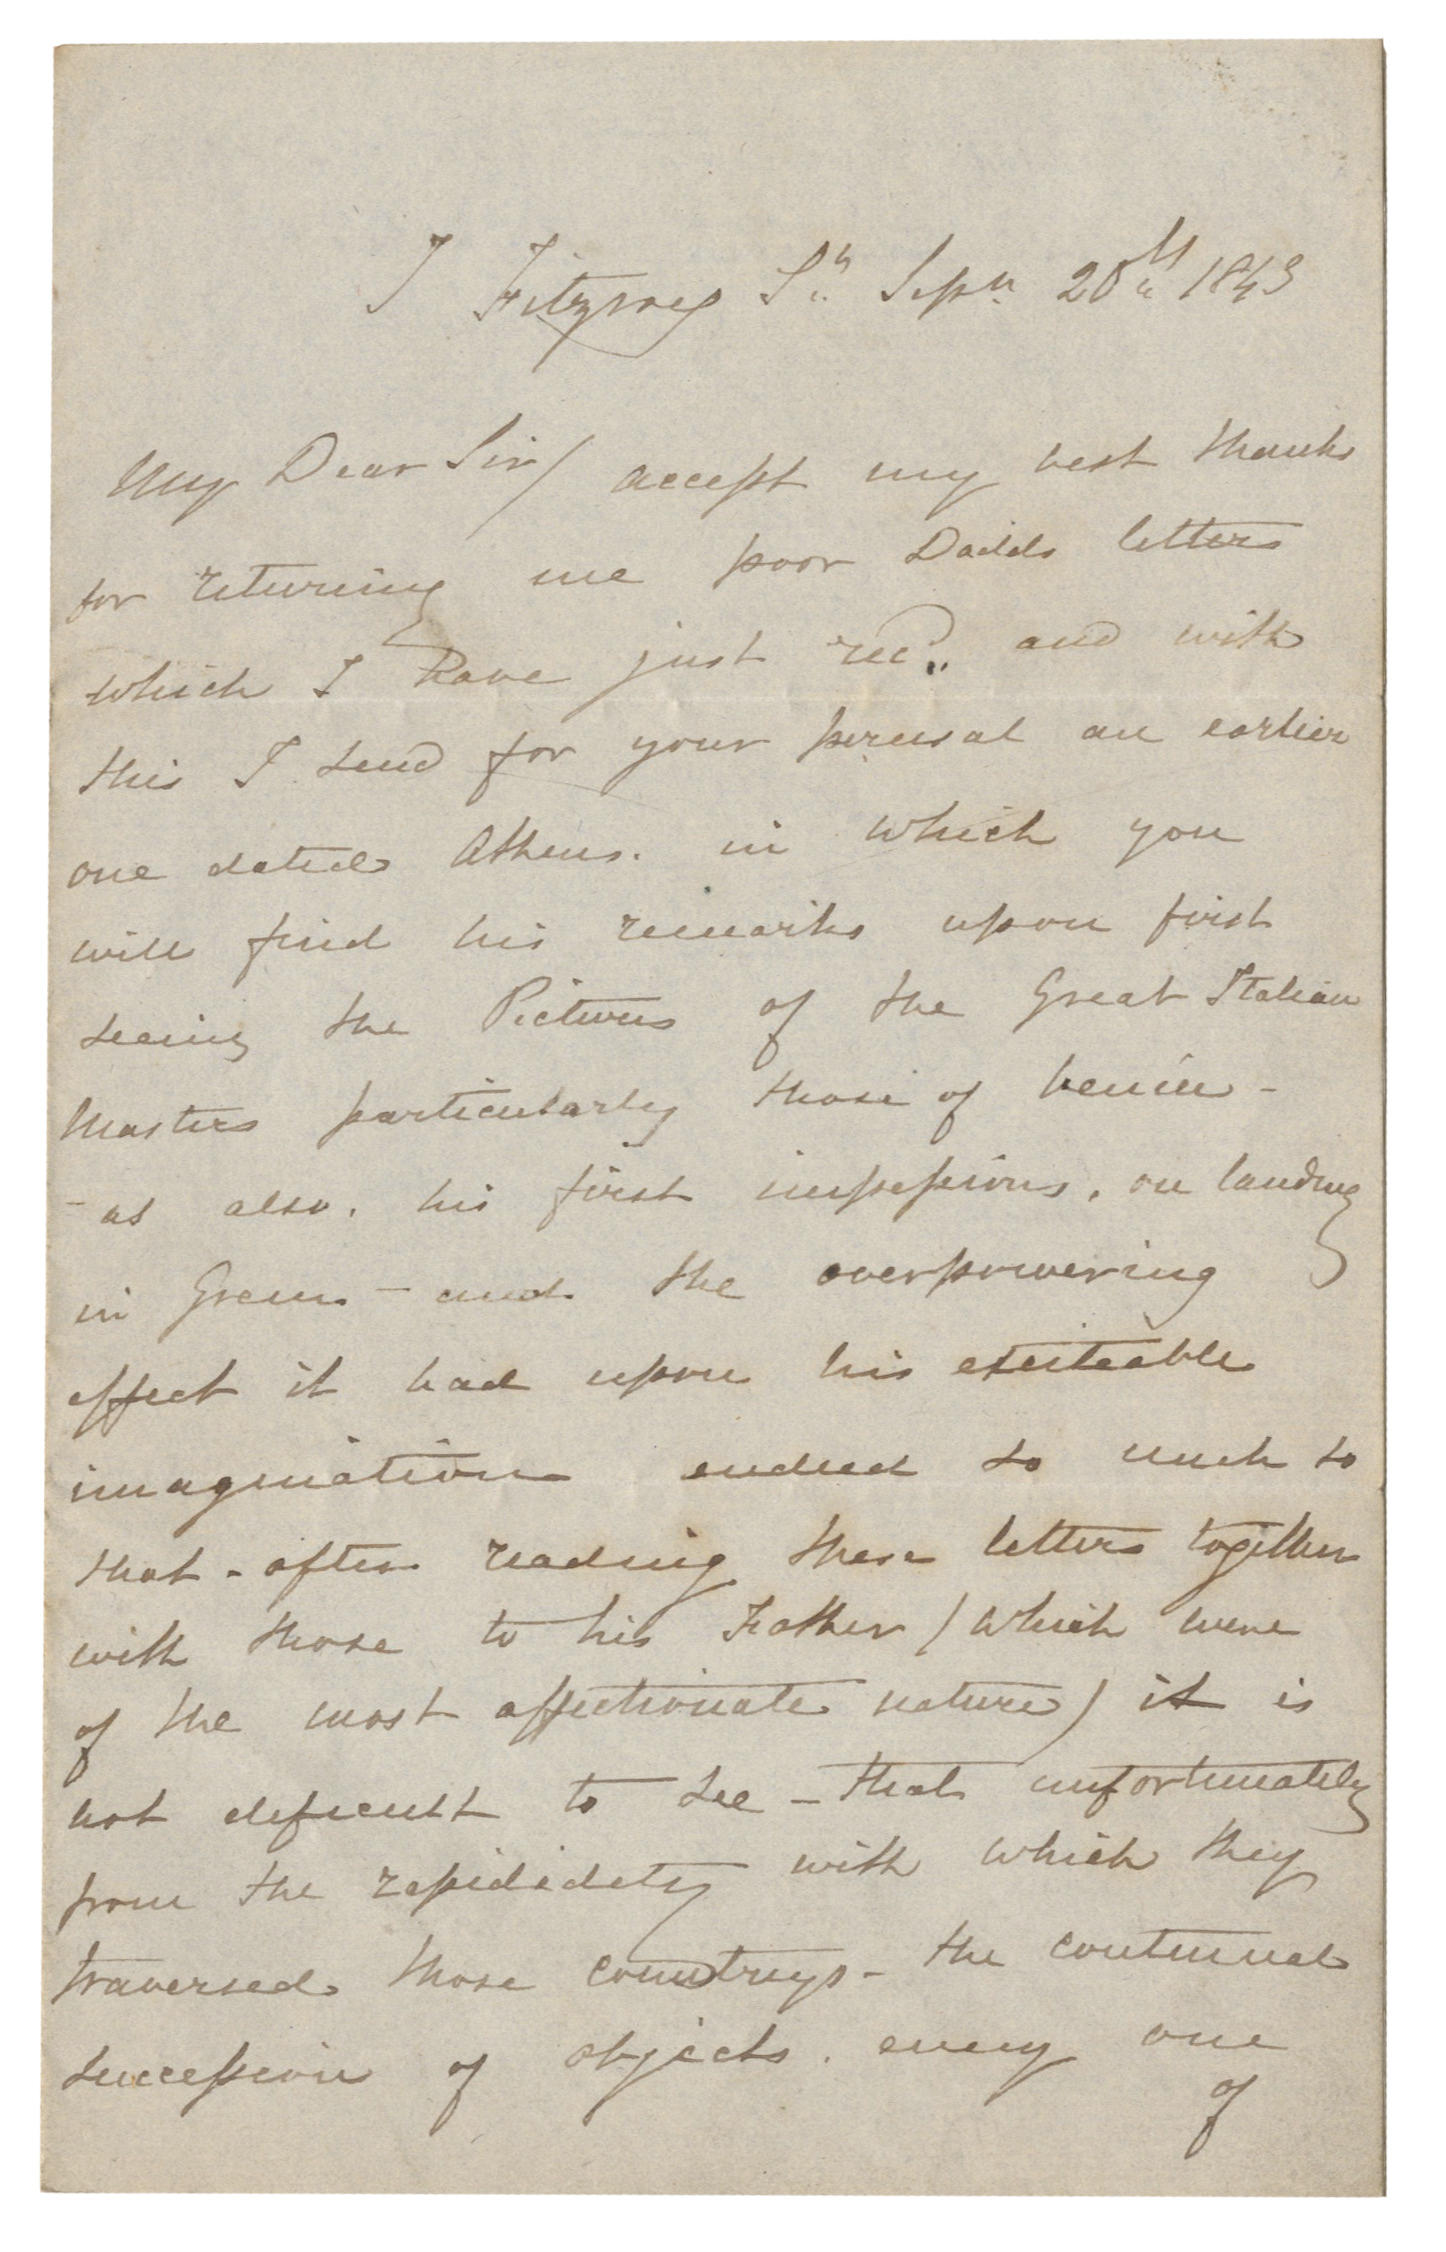 7 Fitzroy St. Sepr. 20th 1843
My Dear Sir / accept my best thanks
for returning me poor Dadds letters
which I have just recd. and with
this I send for your perusal an earlier
one dated Athens. in which you
will find his remarks upon first
seeing the Pictures of the Great Italian
Masters particularly those of Venice -
- as also. his first impressions, on landing
in Greece - and the overpowering
effect it had upon his exciteable
imagination endeed so much so
that - after reading these letters together
with those to his Father / which were
of the most affectionate nature) it is
not deficult to see - that unfortunately
from the rapididety with which they
traversed those countrys - the continual
succession of objects. every one
of